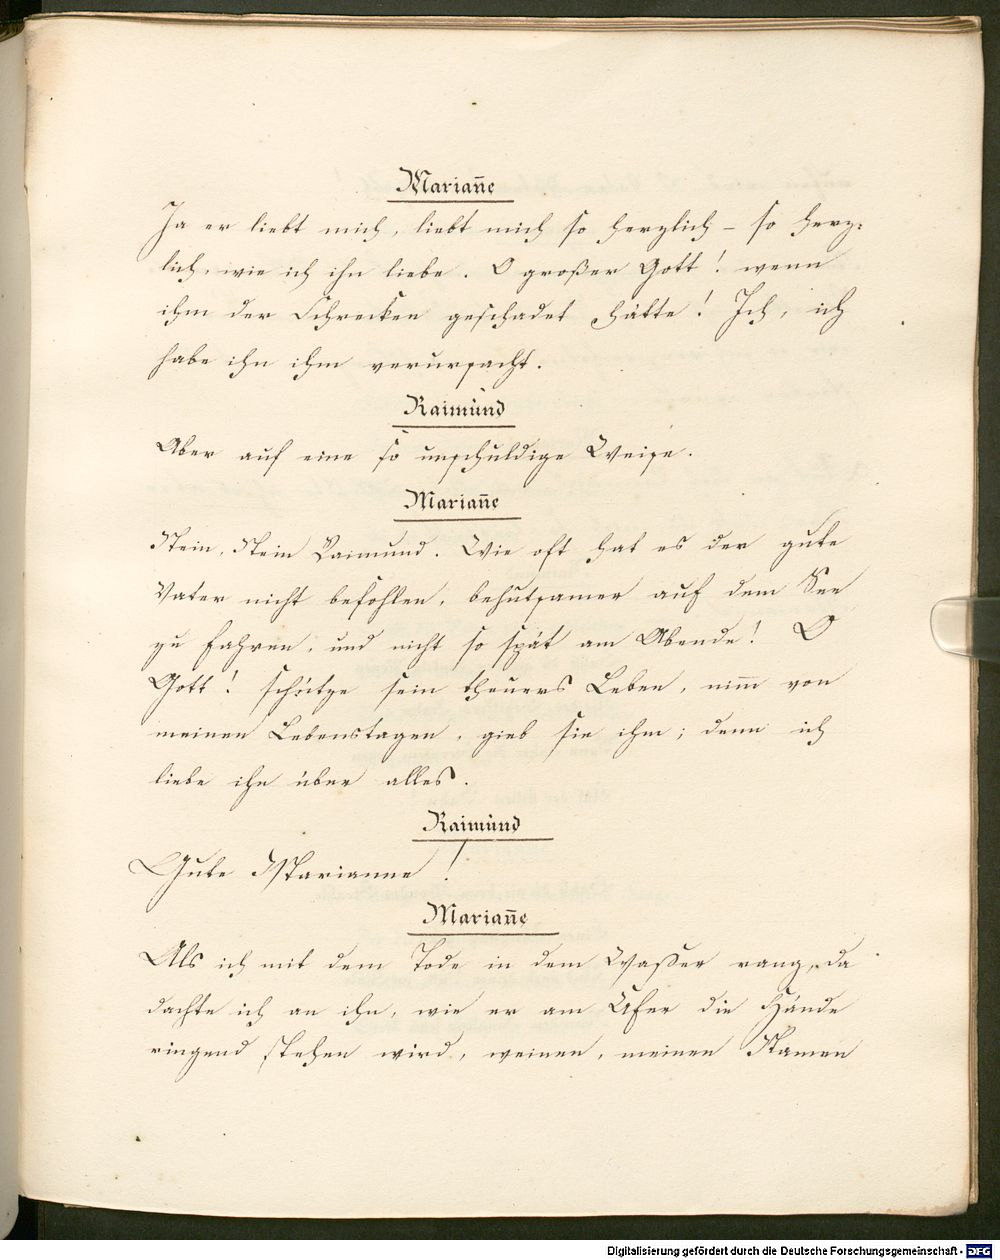 Mariañe
Ja er liebt mich, liebt mich so herzlich – so herz-
lich, wie ich ihn liebe. O großer Gott! wenn
ihm der Schrecken geschadet hätte! Ich, ich
habe ihn ihm verursacht.
Raimund
Aber auf eine so unschuldige Weise.
Mariañe
Nein, Nein Raimund. Wie oft hat es der gute
Vater nicht befohlen, behutsamer auf dem See
zu fahren, und nicht so spät am Abende! O
Gott! schütze sein theuers Leben, nim̄ von
meinen Lebenstagen, gieb sie ihm; denn ich
liebe ihn über alles.
Raimund
Gute Marianne!
Mariañe
Als ich mit dem Tode in dem Waßer rang, da
dachte ich an ihn, wie er am Ufer die Hände
ringend stehen wird, weinen, meinen Namen
Digitalisierung gefördert durch die Deutsche Forschungsgemeinschaft - DFG